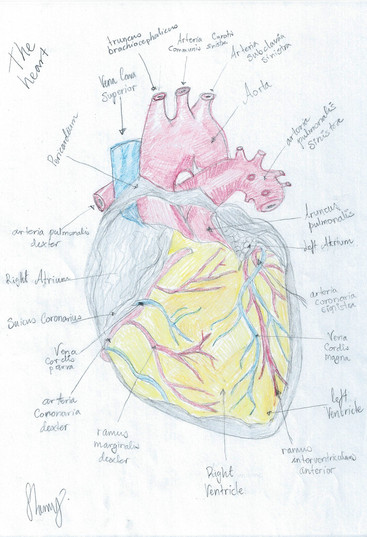 The
heart
truncus
brachiocephalicus
Arteria
Communis
Carotis
sinistra
Arteria
subclavia
sinistra
Vena Cava
Superior
Aorta
arteria
pulmonalis
sinistra
Pericardium
truncus
pulmonalis
arteria pulmonalis
dexter
left Atrium
Right Atrium
arteria
coronaria
sinistra
Sulcus Coronarius
Vena
Cordis
parva
Vena
Cordis
magna
arteria
Coronaria
dexter
left
Ventricle
ramus
marginalis
dexter
Right
Ventricle
ramus
interventricularis
anterior